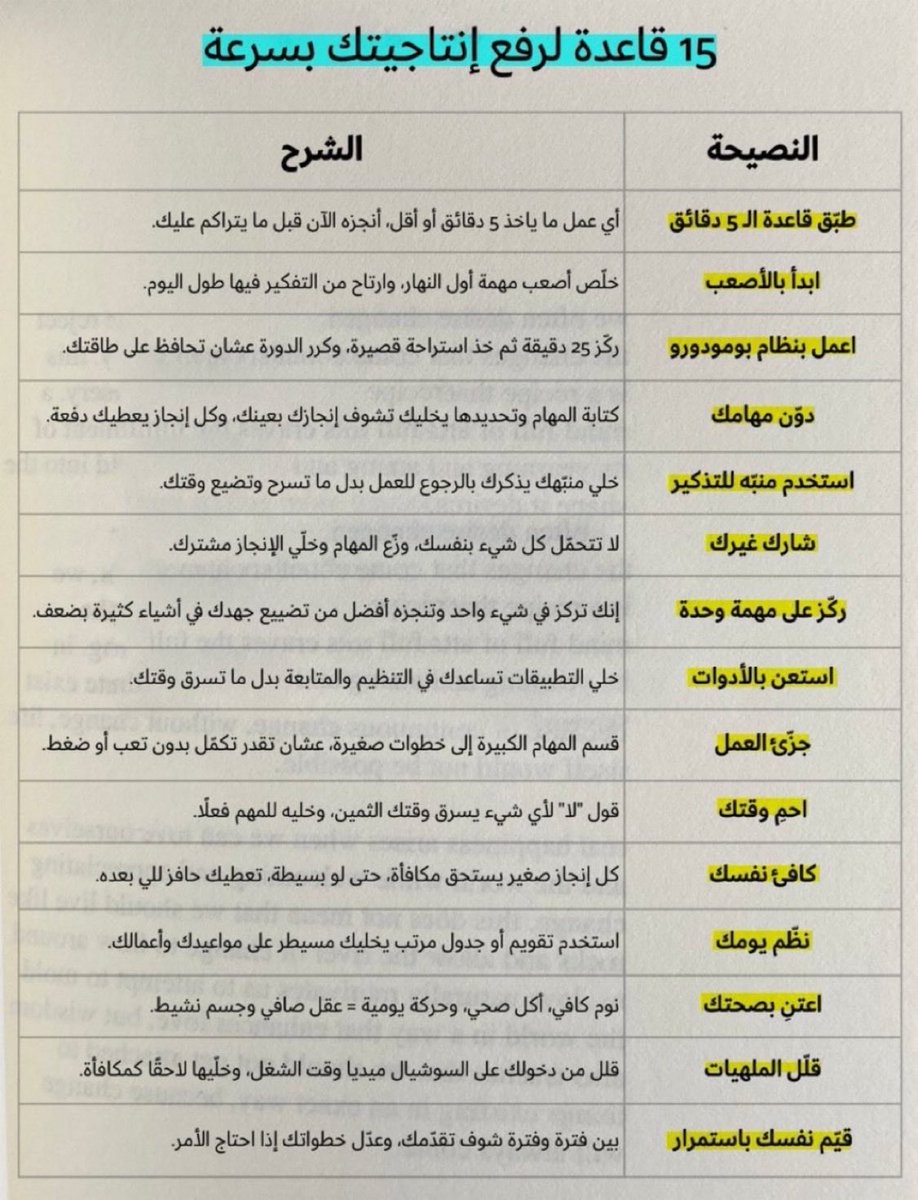 15 قاعدة لرفع إنتاجيتك بسرعة
النصيحة الشرح
طبّق قاعدة الـ 5 دقائق أي عمل ما ياخذ 5 دقائق أو أقل، أنجزه الآن قبل ما يتراكم عليك.
ابدأ بالأصعب خلّص أصعب مهمة أول النهار، وارتاح من التفكير فيها طول اليوم.
اعمل بنظام بومودورو ركّز 25 دقيقة ثم خذ استراحة قصيرة، وكرر الدورة عشان تحافظ على طاقتك.
دوّن مهامك كتابة المهام وتحديدها يخليك تشوف إنجازك بعينك، وكل إنجاز يعطيك دفعة.
استخدم منبّه للتذكير خلي منبّهك يذكرك بالرجوع للعمل بدل ما تسرح وتضيع وقتك.
شارك غيرك لا تتحمّل كل شيء بنفسك، وزّع المهام وخلّي الإنجاز مشترك.
ركّز على مهمة وحدة إنك تركز في شيء واحد وتنجزه أفضل من تضييع جهدك في أشياء كثيرة بضعف.
استعن بالأدوات خلي التطبيقات تساعدك في التنظيم والمتابعة بدل ما تسرق وقتك.
جزّئ العمل قسم المهام الكبيرة إلى خطوات صغيرة، عشان تقدر تكمّل بدون تعب أو ضغط.
احمِ وقتك قول "لا" لأي شيء يسرق وقتك الثمين، وخليه للمهم فعلًا.
كافئ نفسك كل إنجاز صغير يستحق مكافأة، حتى لو بسيطة، تعطيك حافز للي بعده.
نظّم يومك استخدم تقويم أو جدول مرتب يخليك مسيطر على مواعيدك وأعمالك.
اعتنِ بصحتك نوم كافي، أكل صحي، وحركة يومية = عقل صافي وجسم نشيط.
قلّل الملهيات قلل من دخولك على السوشيال ميديا وقت الشغل، وخلّيها لاحقًا كمكافأة.
قيّم نفسك باستمرار بين فترة وفترة شوف تقدّمك، وعدّل خطواتك إذا احتاج الأمر.